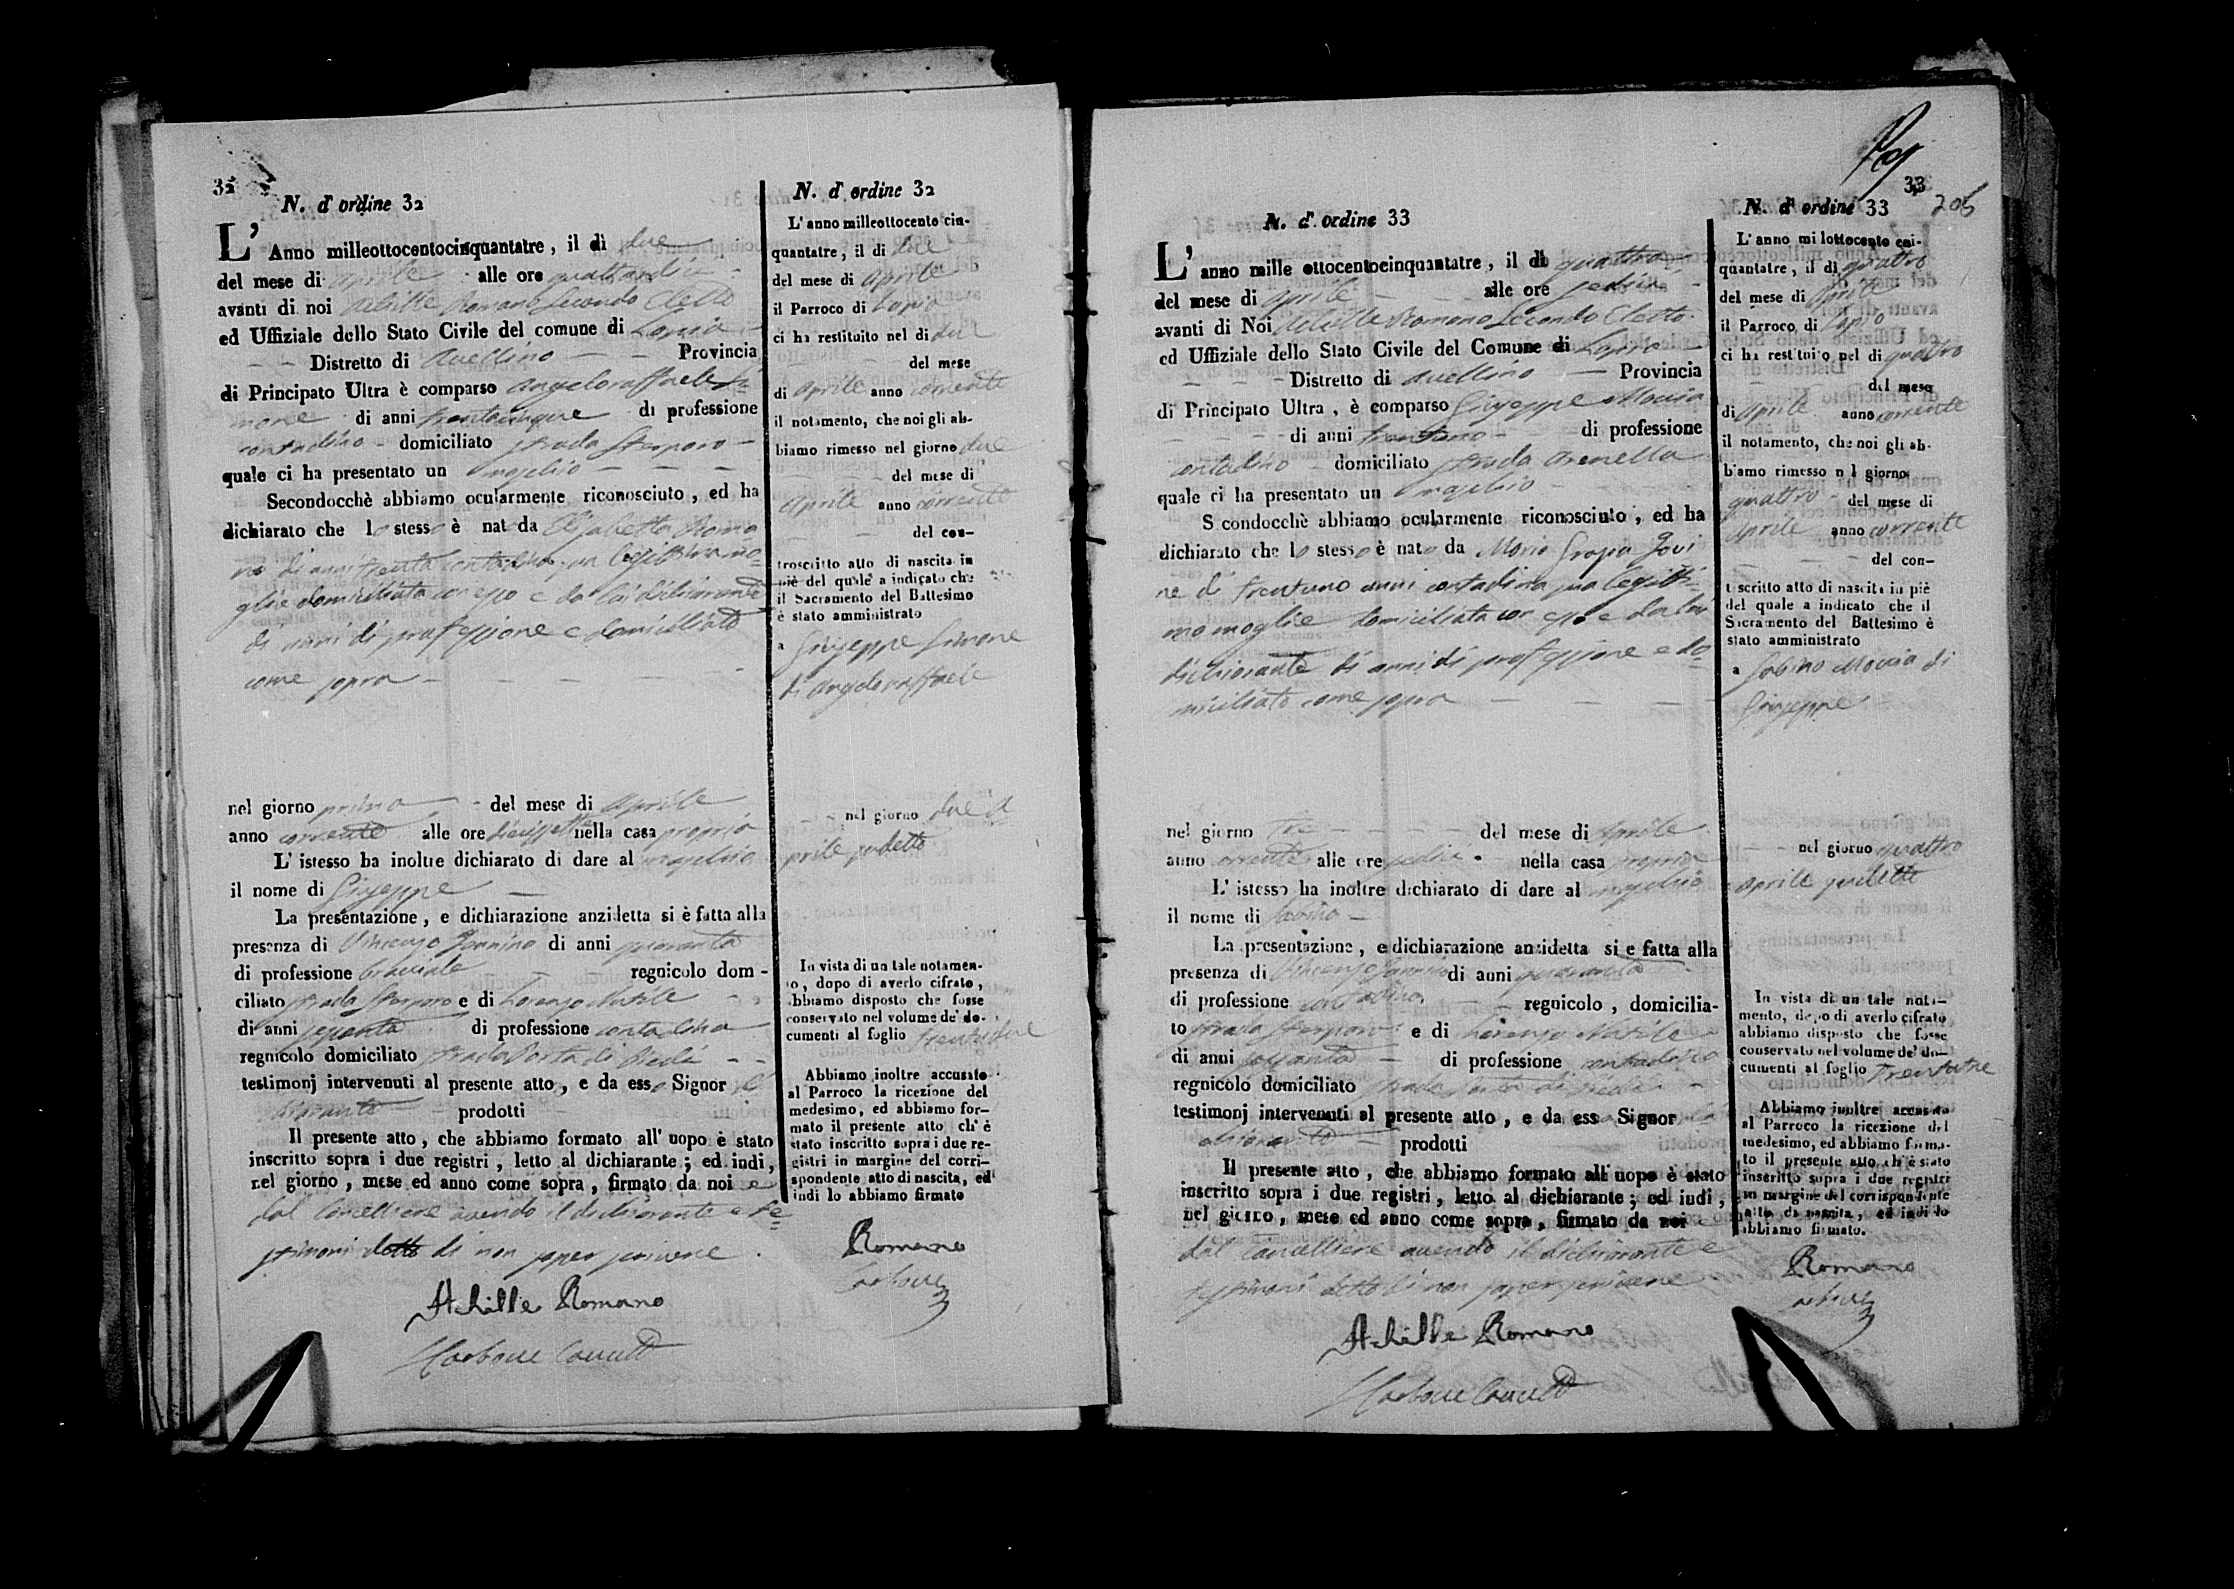 32
N. d' ordine 32
L' Anno milleottocentocinquantatre, il dì due
del mese di aprile alle ore quattordici
avanti di noi Achille Romano Secondo Eletto
ed Uffiziale dello Stato Civile del comune di Lapio
Distretto di Avellino Provincia
di Principato Ultra è comparso Angeloraffaele Si=
mone di anni trentacinque di professione
contadino domiciliato strada
quale ci ha presentato un maschio
Secondocchè abbiamo ocularmente riconosciuto, ed ha
dichiarato che lo stesso è nat da Elisabetta Roma
no di anni trenta contadina sua legittima mo=
glie domiciliata con esso e da lui dichiarante
di anni di professione e domiciliato
come sopra
nel giorno primo del mese di Aprile
anno corrente alle ore diecissette nella casa propria
L' istesso ha inoltre dichiarato di dare al maschio
il nome di Giuseppe
La presentazione, e dichiarazione anzidetta si è fatta alla
presenza di Vincenzo Jannino di anni quaranta
di professione bracciale regnicolo dom-
ciliato strada e di Lorenzo
di anni di professione contadino
regnicolo domiciliato strada Porta di Piedi
testimonj intervenuti al presente atto, e da esso Signor di
chiarante prodotti
Il presente atto, che abbiamo formato all' uopo è stato
inscritto sopra i due registri, letto al dichiarante; ed indi,
nel giorno, mese ed anno come sopra, firmato da noi e
dal Cancelliere avendo il dichiarante e te=
stimoni detto di non saper scrivere.
Achille Romano
N. d' ordine 32
L' anno milleottocento cin-
quantatre, il di due
del mese di aprile
il Parroco di Lapio
ci ha restituito nel di due
del mese
di aprile anno corrente
il notamento, che noi gli ab-
biamo rimesso nel giorno due
del mese di
aprile anno corrente
del con-
troscritto atto di nascita in
piè del quale a indicato che
il Sacramento del Battesimo
è stato amministrato
a Giuseppe Simone
di Angeloraffaele
nel giorno due A
prile sudetto
In vista di un tale notamen-
to, dopo di averlo cifrato,
abbiamo disposto che fosse
conservato nel volume de' do-
cumenti al foglio trentadue
Abbiamo inoltre accusato
al Parroco la ricezione del
medesimo, ed abbiamo for-
mato il presente atto ch' è
stato inscritto sopra i due re-
gistri in margine del corri-
spondente atto di nascita, ed
indi lo abbiamo firmato
Romano
33
205
N. d'. ordine 33
L' anno mille ottocentocinquantatre, il dì quattro
del mese di aprile alle ore sedici
avanti di Noi Achille Romano Secondo Eletto
ed Uffiziale dello Stato Civile del Comune di Lapio
Distretto di Avellino Provincia
di Principato Ultra, è comparso Giuseppe Moccia
di anni trentuno di professione
contadino domiciliato strada Arenella
quale ci ha presentato un maschio
S condocchè abbiamo ocularmente riconosciuto, ed ha
dichiarato che lo stesso è nato da Maria Grazia Jovi
ne di trentuno anni contadina sua legitti=
ma moglie domiciliata con esso e da lui
dichiarante di anni di professione e do=
miciliato come sopra
nel giorno tre del mese di Aprile
anno corrente alle ore sedici nella casa propria
L' istesso ha inoltre dichiarato di dare al maschio
il nome di Sabino
La presentazione, e dichiarazione anzidetta si e fatta alla
presenza di Vincenzo Jannino di anni quaranta
di professione contadino regnicolo, domicilia-
to strada e di Lorenzo
di anni di professione contadino
regnicolo domiciliato strada Porta di Piedi
testimonj intervenuti al presente atto, e da ess Signor
dichiarante prodotti
Il presente atto, che abbiamo formato all' uopo è stato
inscritto sopra i due registri, letto al dichiarante; ed indi,
nel giorno, mese ed anno come sopra, firmato da noi e
dal Cancelliere avendo il dichiarante e
testimoni detto di non saper scrivere
Achille Romano
N. d' ordine 33
L' anno mi lottocento cin-
quantatre, il di quattro
del mese di Aprile
il Parroco di Lapio
ci ha restituito nel di quattro
del mese
di Aprile anno corrente
il notamento, che noi gli ab-
biamo rimesso n l giorno
quattro del mese di
Aprile anno corrente
del con-
t scritto atto di nascita in piè
del quale a indicato che il
Sacramento del Battesimo è
stato amministrato
a Sabino Moccia di
Giuseppe
nel giorno quattro
Aprile sudetto
In vista di un tale nota-
mento, dopo di averlo cifrato
abbiamo disposto che fosse
conservato nel volume de' do-
cumenti al foglio Trentatre
Abbiamo inoltre accusato
al Parroco la ricezione del
medesimo, ed abbiamo forma-
to il presente atto ch'è stato
inscritto sopra i due registri
in margine del corrispondente
atto di nascita, ed indi lo
abbiamo firmato.
Romano